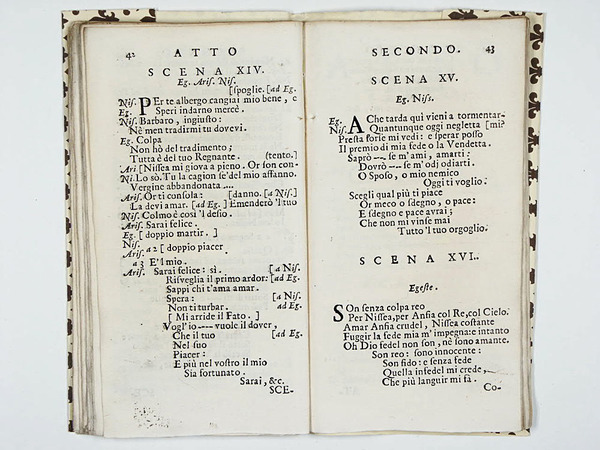 42 ATTO
SCENA XIV.
Eg. Aris. Nis.
[spoglie. [ad Eg.
Nis. PEr te albergo cangiai mio bene, e
Eg. Speri indarno mercè.
Nis. Barbaro, ingiusto:
Nè men tradirmi tu dovevi.
Eg. Colpa
Non hò del tradimento;
Tutta è del tuo Regnante. (tento.]
Ari [Nissea mi giova a pieno. Or son con-
Ni. Lo sò. Tu la cagion se'del mio affanno.
Vergine abbandonata ....
Aris. Or ti consola: [danno. [a Nis.]
La devi amar. [ad Eg.] Emenderò 'l tuo
Nis. Colmo è così 'l desio.
Aris. Sarai felice.
Eg. [doppio martir.]
Nis.
Aris. a 2 [doppio piacer
a 3 E'l mio.
Aris. Sarai felice: sì. [a Nis.
Risveglia il primo ardor: [ad Eg.
Sappi chi t'ama amar.
Spera: [a Nis.
Non ti turbar. ad Eg.
[Mi arride il Fato.]
Vogl'io ---- vuole il dover,
Che il tuo [ad Eg.
Nel suo
Piacer:
E più nel vostro il mio
Sia fortunato.
Sarai, &c.
SCE-
SECONDO. 43
SCENA XV.
Eg. Niss.
Eg. A Che tarda qui vieni a tormentar-
Nis. Quantunque oggi negletta [mi?
Presta forse mi vedi: e sperar posso
Il premio di mia fede o la Vendetta.
Saprò --- se m'ami, amarti:
Dovrò --- se m'odj odiarti.
O Sposo, o mio nemico
Oggi ti voglio.
Scegli qual più ti piace
Or meco o sdegno, o pace:
E sdegno e pace avrai;
Che non mi vinse mai
Tutto 'l tuo orgoglio.
SCENA XVI.
Egeste.
SOn senza colpa reo
Per Nissea, per Ansia col Re, col Cielo.
Amar Ansia crudel, Nissea costante
Fuggir la fede mia m'impegna: e intanto
Oh Dio fedel non son, nè sono amante.
Son reo: sono innocente:
Son fido: e senza fede
Quella infedel mi crede,
Che più languir mi fa.
Co-